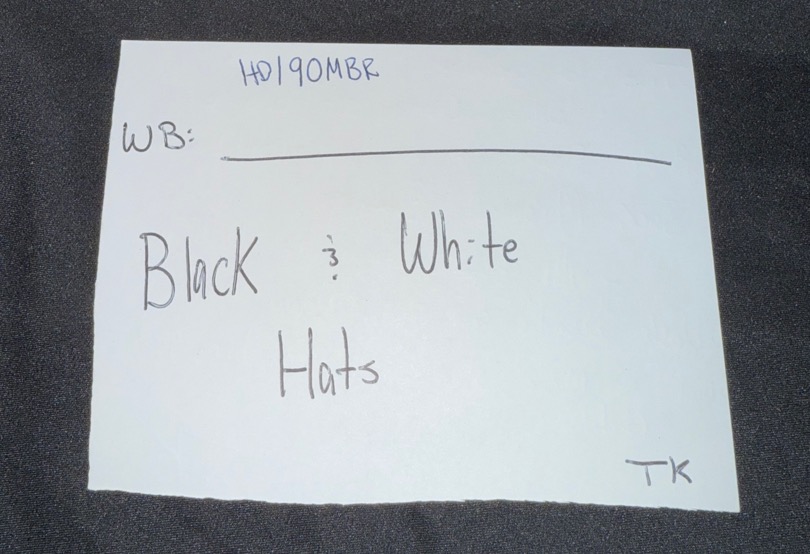 HD190MBR
WB:
Black & White
Hats
TK